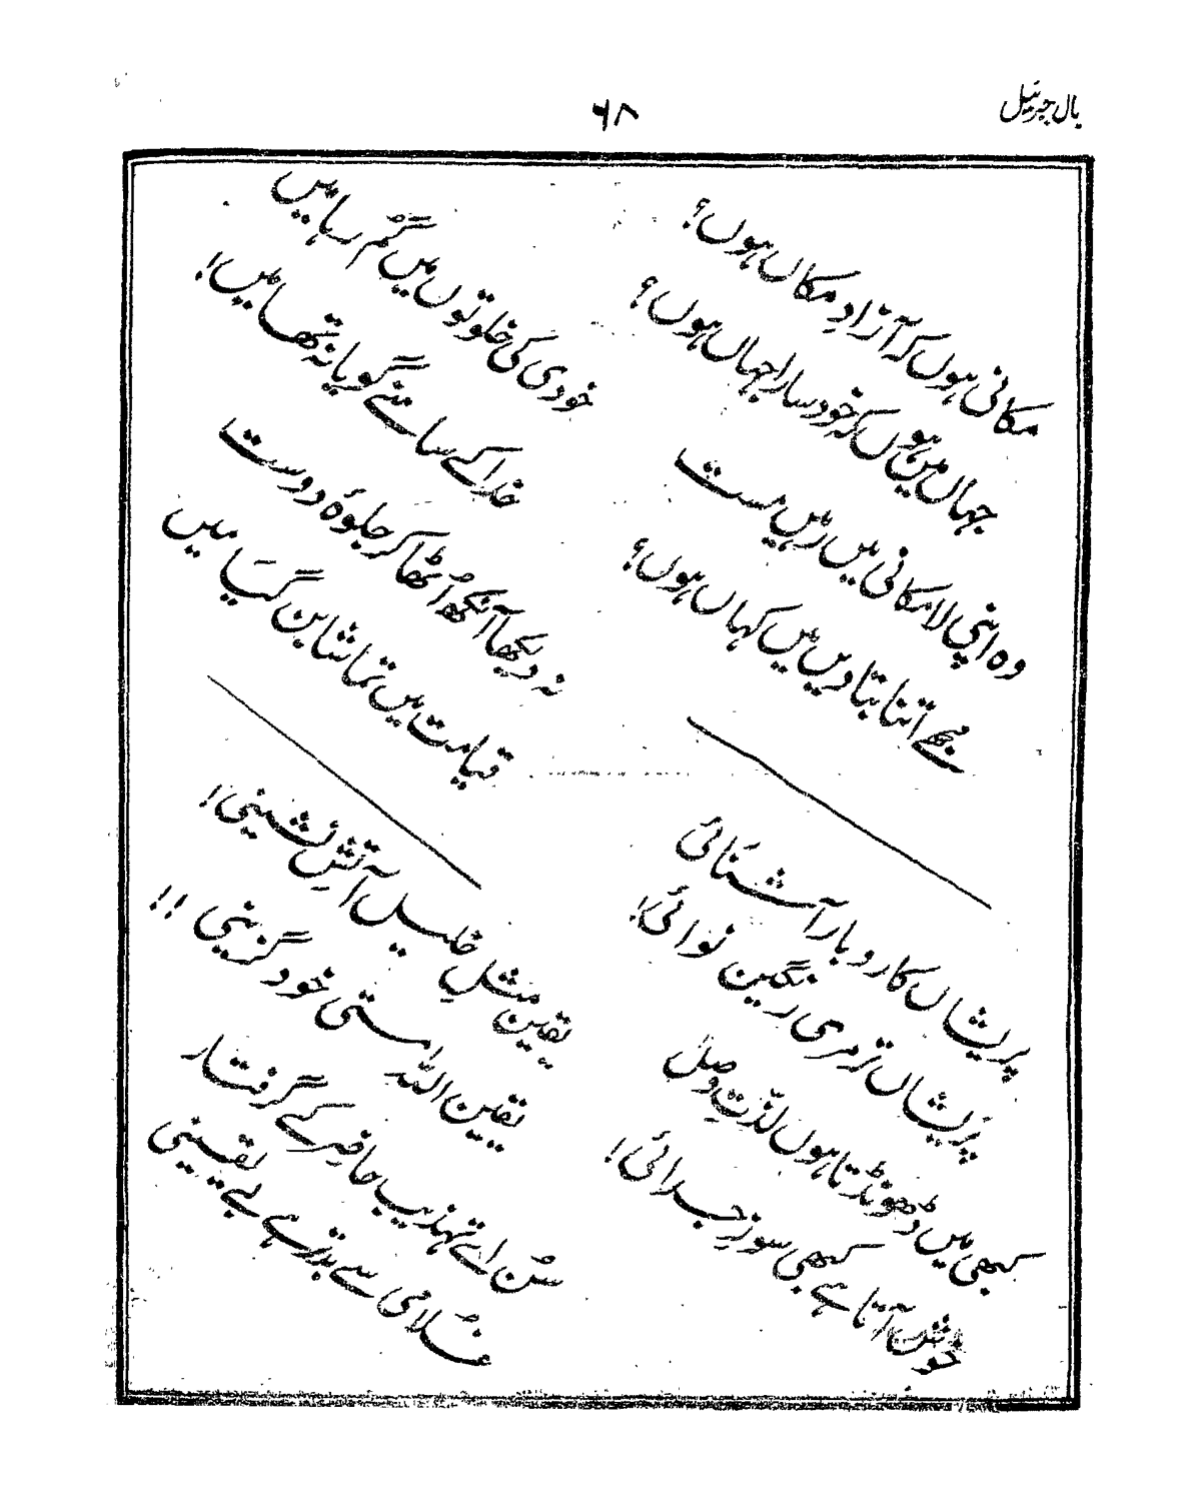 بال جبریل
۶۸
مکانی ہوں کہ آزادِ مکاں ہوں؟
جہاں میں ہوں کہ خود سارا جہاں ہوں؟
وہ اپنی لامکانی میں رہیں مست
مجھے اتنا بتا دیں میں کہاں ہوں؟
خودی کی خلوتوں میں گُم رہا میں
خدا کے سامنے گویا نہ تھا میں!
نہ دیکھا آنکھ اُٹھا کر جلوۂ دوست
قیامت میں تماشا بن گیَا میں
پریشاں کاروبارِ آشنَائی
پرَیشاں تر مری رنگین نوائی!
کبھی میں ڈھونڈتا ہوں لذّتِ وصل
خوش آتا ہے کبھی سوزِ جدائی!
یقین مثلِ خلیل آتش نشینی!
یقین اللہ مستی خود گزینی!!
سُن اے تہذیب حاضر کے گرفتار
غلامی سے بتر ہے بے یقینی